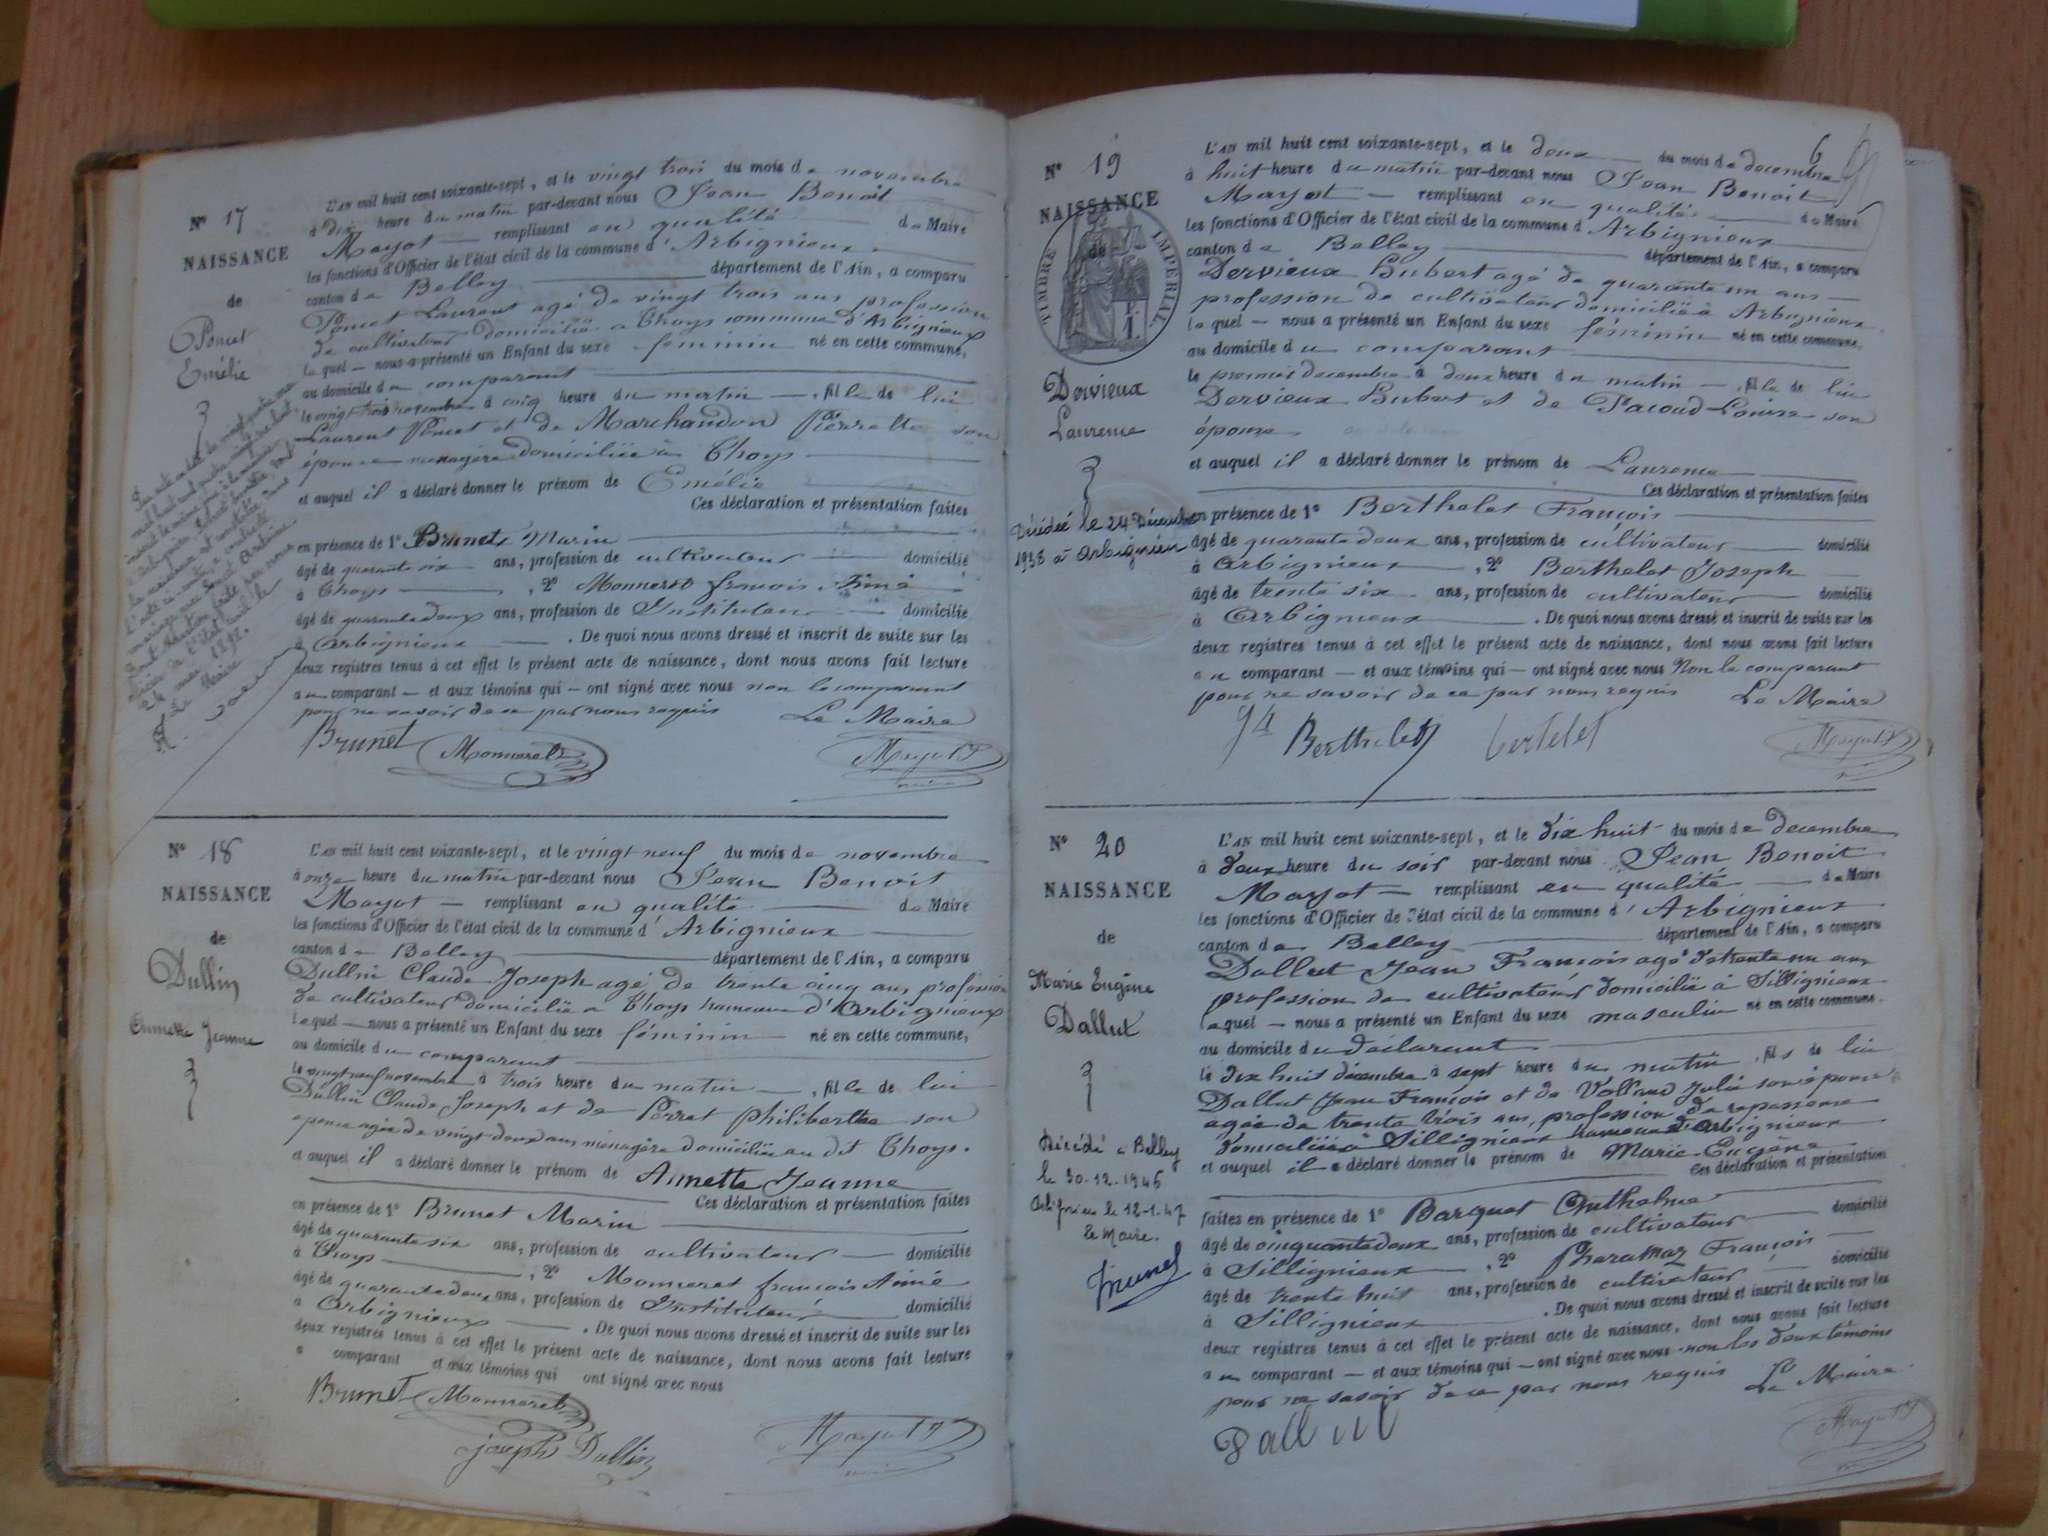 N° 17
NAISSANCE
de
Poncet
Emélie
L'AN mil huit cent soixante-sept, et le vingt trois du mois de novembre
à dix heure du matin par-devant nous Jean Benoit
Mayot remplissant en qualité de Maire
les fonctions d'Officier de l'état civil de la commune d'Arbignieux
canton de Belley département de l'Ain, a comparu
Poncet Laurent agé de vingt trois ans profession
de cultivateur domicilié à Thoys commune d'Arbignieux
lequel nous a présenté un Enfant du sexe féminin né en cette commune,
au domicile du comparant
le vingt trois novembre à cinq heure du matin, fille de lui
Laurent Poncet et de Marchandon Pierrette son
épouse menagère domiciliée à Thoys
et auquel il a déclaré donner le prénom de Emélie
Ces déclaration et présentation faites
en présence de 1° Brunet Marin
âgé de quarante six ans, profession de cultivateur domicilié
à Thoys, 2° Monneret françois Aimé
âgé de quarante deux ans, profession de Instituteur domicilié
à Arbignieux. De quoi nous avons dressé et inscrit de suite sur les
deux registres tenus à cet effet le présent acte de naissance, dont nous avons fait lecture
au comparant et aux témoins qui ont signé avec nous non le comparant
pour ne savoir de ce par nous requis Le Maire
Brunet Monneret Mayot
N° 18
NAISSANCE
de
Dullin
Annette Jeanne
L'AN mil huit cent soixante-sept, et le vingt neuf du mois de novembre
à onze heure du matin par-devant nous Jean Benoit
Mayot remplissant en qualité de Maire
les fonctions d'Officier de l'état civil de la commune d'Arbignieux
canton de Belley département de l'Ain, a comparu
Dullin Claude Joseph agé de trente cinq ans profession
de cultivateur domicilié à Thoys hameau d'Arbignieux
lequel nous a présenté un Enfant du sexe féminin né en cette commune,
au domicile du comparant
le vingt neuf novembre à trois heure du matin, fille de lui
Dullin Claude Joseph et de Perret Philiberthe son
épouse agée de vingt deux ans ménagère domiciliée au dit Thoys.
et auquel il a déclaré donner le prénom de Annette Jeanne
Ces déclaration et présentation faites
en présence de 1° Brunet Marin
âgé de quarante six ans, profession de cultivateur domicilié
à Thoys, 2° Monneret françois Aimé
âgé de quarante deux ans, profession de Instituteur domicilié
à Arbignieux. De quoi nous avons dressé et inscrit de suite sur les
deux registres tenus à cet effet le présent acte de naissance, dont nous avons fait lecture
a comparant et aux témoins qui ont signé avec nous
Brunet Monneret
joseph Dullin Mayot
6
N° 19
NAISSANCE
de
TIMBRE IMPÉRIAL
Dervieux
Laurence
Décédée le 24 Décembre
1938 à Arbignieu
L'AN mil huit cent soixante-sept, et le deux du mois de decembre
à huit heure du matin par-devant nous Jean Benoit
Mayot remplissant en qualité de Maire
les fonctions d'Officier de l'état civil de la commune d Arbignieux
canton de Belley département de l'Ain, a comparu
Dervieux Hubert agé de quarante un ans
profession de cultivateur domicilié à Arbignieux
lequel nous a présenté un Enfant du sexe féminin né en cette commune,
au domicile du comparant
le premier decembre à deux heure du matin, fille de lui
Dervieux Hubert et de Pacoud Louise son
épouse
et auquel il a déclaré donner le prénom de Laurence
Ces déclaration et présentation faites
en présence de 1° Berthelet François
âgé de quarante deux ans, profession de cultivateur domicilié
à Arbignieux, 2° Berthelet Joseph
âgé de trente six ans, profession de cultivateur domicilié
à Arbignieux. De quoi nous avons dressé et inscrit de suite sur les
deux registres tenus à cet effet le présent acte de naissance, dont nous avons fait lecture
au comparant et aux témoins qui ont signé avec nous Non le comparant
pour ne savoir de ce par nous requis Le Maire
Berthelet bertelet Mayot
N° 20
NAISSANCE
de
Marie Eugène
Dallut
Décédé à Belley
le 30-12-1946
Arbignieu le 12-1-47
Le Maire.
L'AN mil huit cent soixante-sept, et le dix huit du mois de decembre
à deux heure du soir par-devant nous Jean Benoit
Mayot remplissant en qualité de Maire
les fonctions d'Officier de l'état civil de la commune d'Arbignieux
canton de Belley département de l'Ain, a comparu
Dallut Jean François agé de trente un ans
profession de cultivateur domicilié à Sillignieux
lequel nous a présenté un Enfant du sexe masculin né en cette commune.
au domicile du déclarant
le dix huit décembre à sept heure du matin, fils de lui
Dallut Jean François et de Volland Julie son épouse
agée de trente trois ans, profession de repasseuse
domiciliée à Sillignieux hameau d'Arbignieux
et auquel il a déclaré donner le prénom de Marie-Eugène
Ces déclaration et présentation
faites en présence de 1° Barquet Anthelme domicilié
âgé de cinquante deux ans, profession de cultivateur
à Sillignieux, 2° Pharamaz François
âgé de trente huit ans, profession de cultivateur domicilié
à Sillignieux. De quoi nous avons dressé et inscrit de suite sur les
deux registres tenus à cet effet le présent acte de naissance, dont nous avons fait lecture
au comparant et aux témoins qui ont signé avec nous non les deux témoins
pour ne savoir de ce par nous requis Le Maire
Dallut Mayot